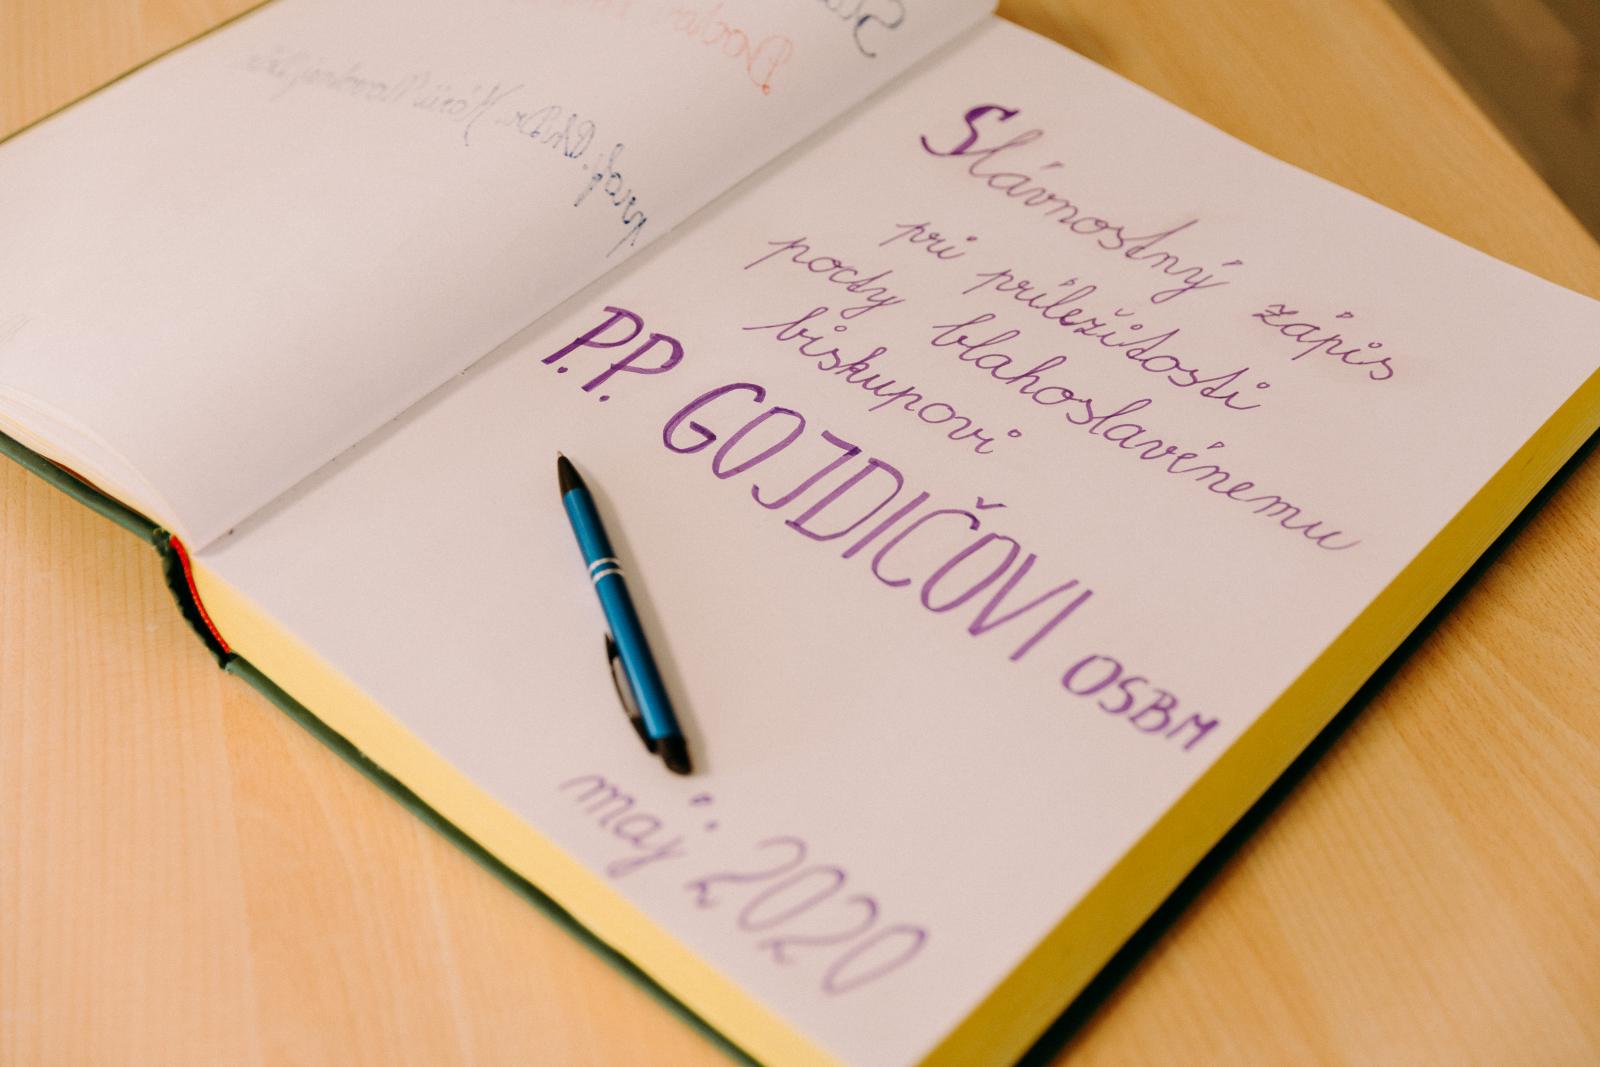 Slávnostný zápis
pri príležitosti
pocty blahoslavénemu
biskupovi
P.P. GOJDIČOVI OSBM
máj 2020